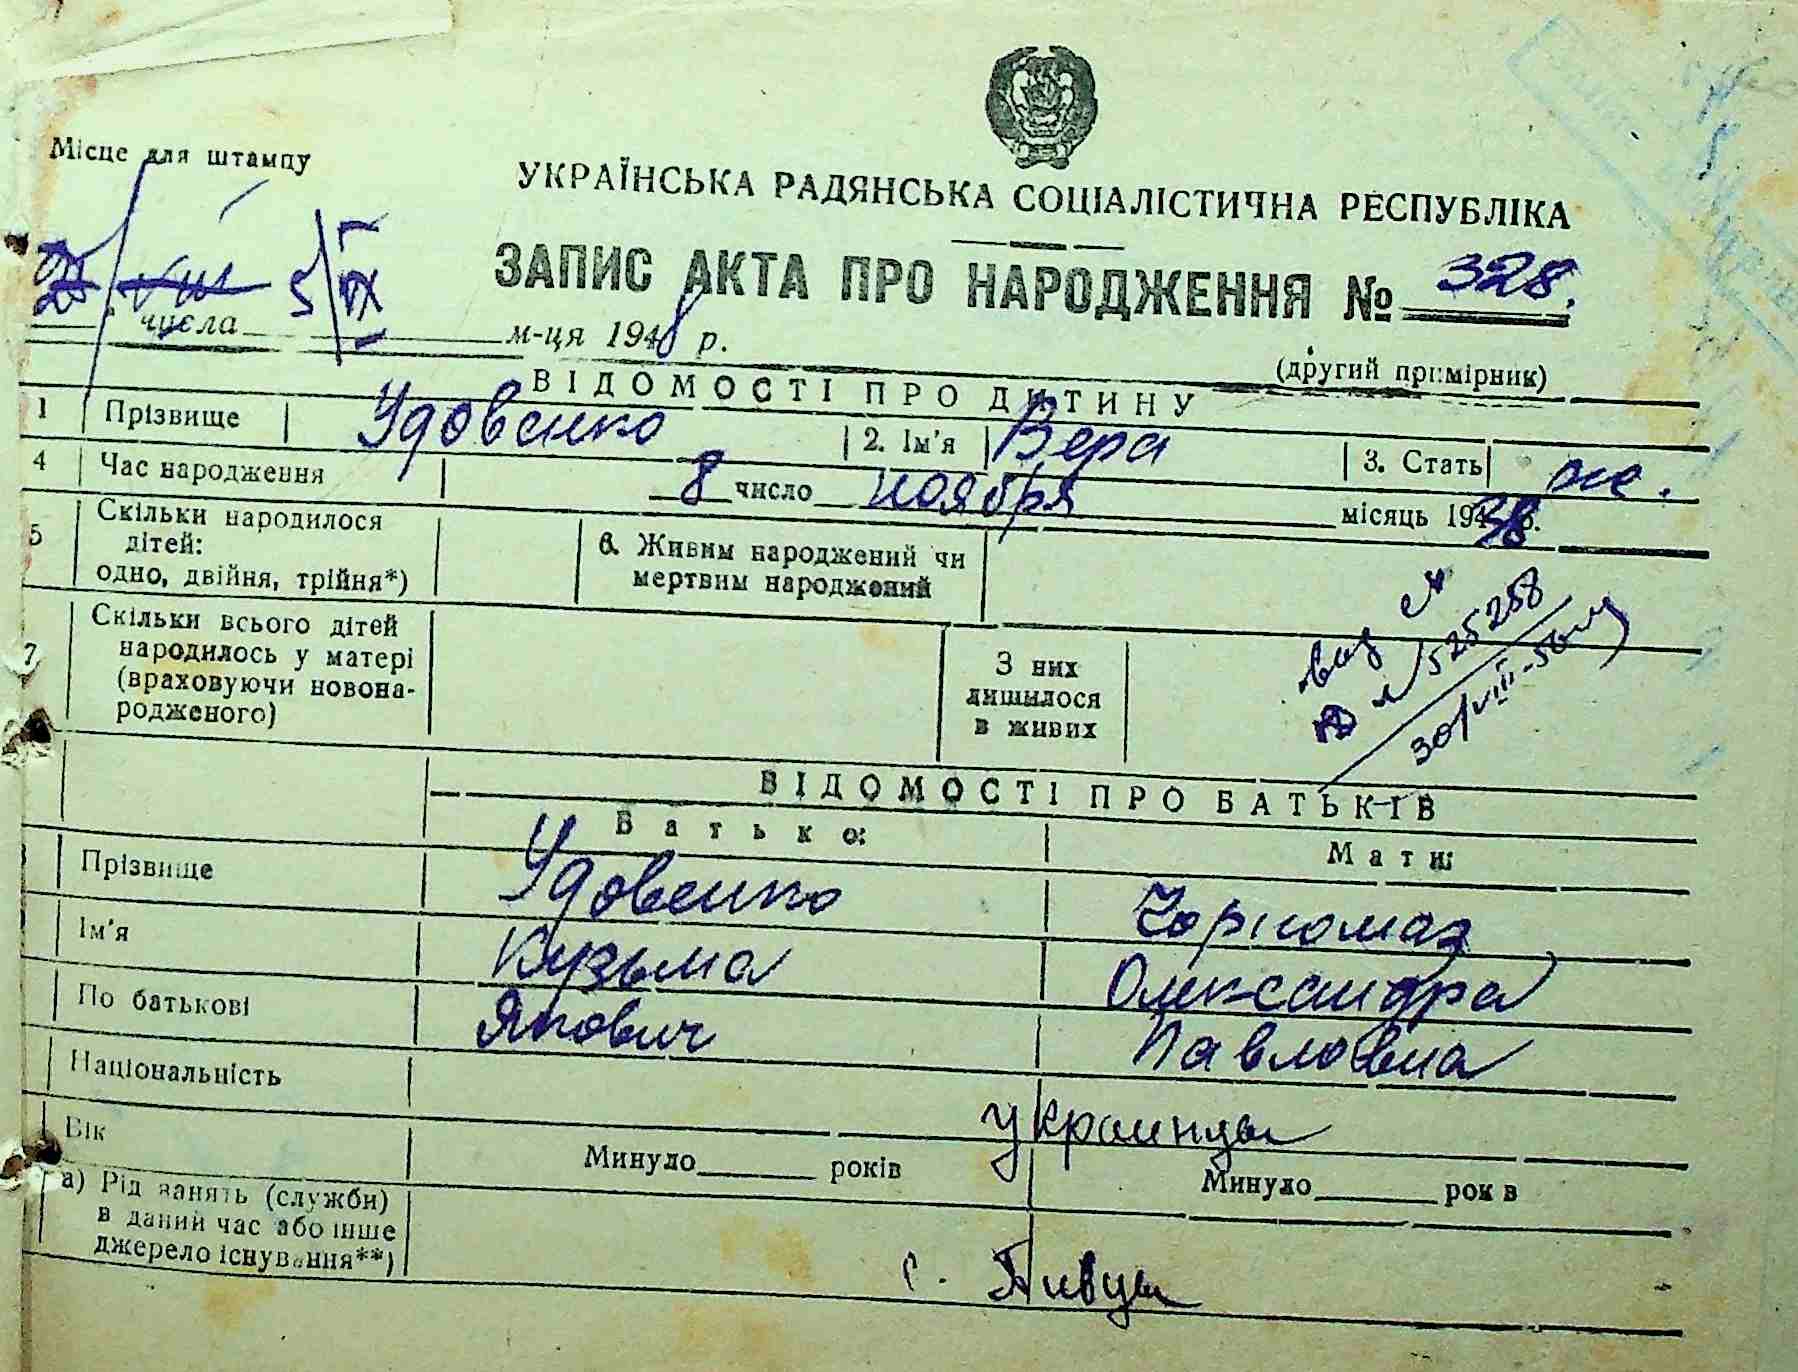 Місце для штампу
УКРАЇНСЬКА РАДЯНСЬКА СОЦІАЛІСТИЧНА РЕСПУБЛІКА
ЗАПИС АКТА ПРО НАРОДЖЕННЯ № 328.
25/VIII 5/IX
числа м-ця 1948 р.
(другий примірник)
ВІДОМОСТІ ПРО ДИТИНУ
1 Прізвище Удовенко 2. Ім'я Вера 3. Стать же.
4 Час народження 8 число ноября місяць 1938 р.
5 Скільки народилося дітей: одно, двійня, трійня*) 6. Живим народжений чи мертвим народжений
7 Скільки всього дітей народилось у матері (враховуючи новонародженого) З них лишилося в живих
525258
30/VIII-56
ВІДОМОСТІ ПРО БАТЬКІВ
Батько: Мати:
Прізвище Удовенко Чорномаз
Ім'я Кузьма Олександра
По батькові Якович Павловна
Національність украинцы
Вік Минуло років Минуло рок в
а) Рід занять (служби) в даний час або інше джерело існування**)
с. Пивцы